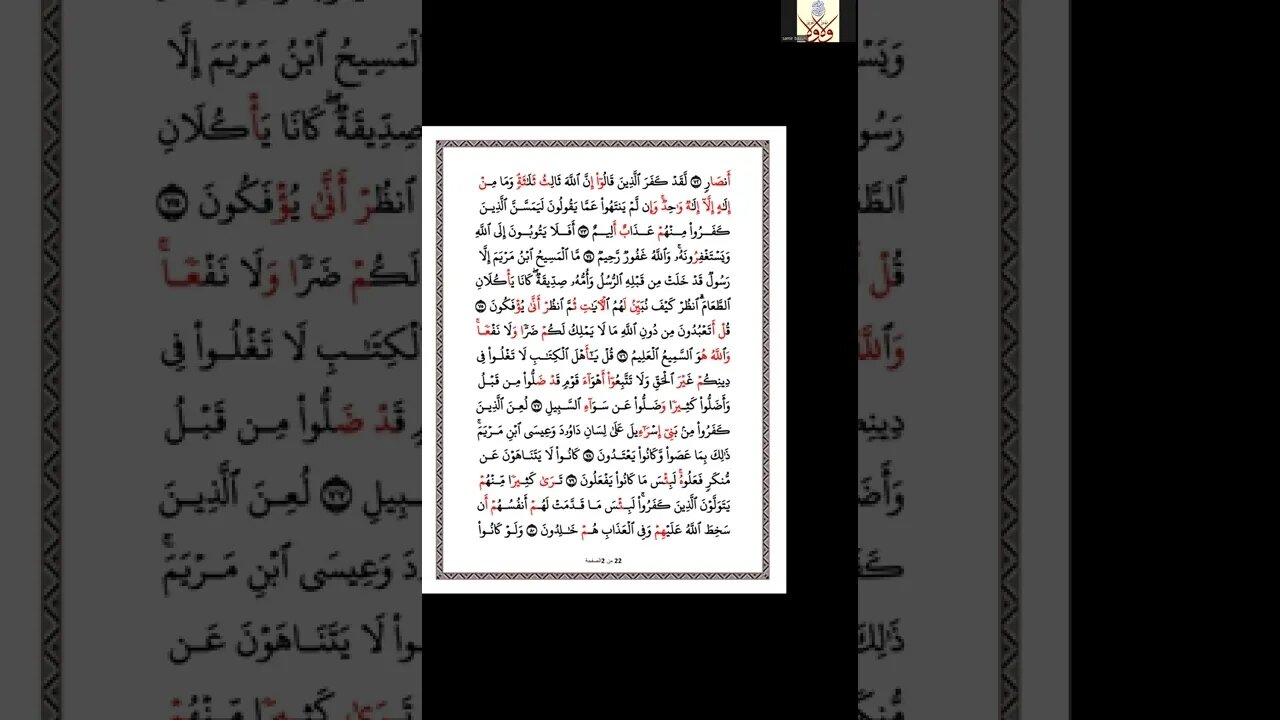 أَنصَارٍ ٧٢ لَّقَدْ كَفَرَ ٱلَّذِينَ قَالُوٓا۟ إِنَّ ٱللَّهَ ثَالِثُ ثَلَٰثَةٍۘ وَمَا مِنْ
إِلَٰهٍ إِلَّآ إِلَٰهٌ وَٰحِدٌۚ وَإِن لَّمْ يَنتَهُوا۟ عَمَّا يَقُولُونَ لَيَمَسَّنَّ ٱلَّذِينَ
كَفَرُوا۟ مِنْهُمْ عَذَابٌ أَلِيمٌ ٧٣ أَفَلَا يَتُوبُونَ إِلَى ٱللَّهِ
وَيَسْتَغْفِرُونَهُۥۚ وَٱللَّهُ غَفُورٌ رَّحِيمٌ ٧٤ مَّا ٱلْمَسِيحُ ٱبْنُ مَرْيَمَ إِلَّا
رَسُولٌ قَدْ خَلَتْ مِن قَبْلِهِ ٱلرُّسُلُ وَأُمُّهُۥ صِدِّيقَةٌۖ كَانَا يَأْكُلَانِ
ٱلطَّعَامَۗ ٱنظُرْ كَيْفَ نُبَيِّنُ لَهُمُ ٱلْءَايَٰتِ ثُمَّ ٱنظُرْ أَنَّىٰ يُؤْفَكُونَ ٧٥
قُلْ أَتَعْبُدُونَ مِن دُونِ ٱللَّهِ مَا لَا يَمْلِكُ لَكُمْ ضَرًّا وَلَا نَفْعًاۚ
وَٱللَّهُ هُوَ ٱلسَّمِيعُ ٱلْعَلِيمُ ٧٦ قُلْ يَٰٓأَهْلَ ٱلْكِتَٰبِ لَا تَغْلُوا۟ فِى
دِينِكُمْ غَيْرَ ٱلْحَقِّ وَلَا تَتَّبِعُوٓا۟ أَهْوَآءَ قَوْمٍ قَدْ ضَلُّوا۟ مِن قَبْلُ
وَأَضَلُّوا۟ كَثِيرًا وَضَلُّوا۟ عَن سَوَآءِ ٱلسَّبِيلِ ٧٧ لُعِنَ ٱلَّذِينَ
كَفَرُوا۟ مِنۢ بَنِىٓ إِسْرَٰٓءِيلَ عَلَىٰ لِسَانِ دَاوُۥدَ وَعِيسَى ٱبْنِ مَرْيَمَۚ
ذَٰلِكَ بِمَا عَصَوا۟ وَّكَانُوا۟ يَعْتَدُونَ ٧٨ كَانُوا۟ لَا يَتَنَاهَوْنَ عَن
مُّنكَرٍ فَعَلُوهُۚ لَبِئْسَ مَا كَانُوا۟ يَفْعَلُونَ ٧٩ تَرَىٰ كَثِيرًا مِّنْهُمْ
يَتَوَلَّوْنَ ٱلَّذِينَ كَفَرُوا۟ۚ لَبِئْسَ مَا قَدَّمَتْ لَهُمْ أَنفُسُهُمْ أَن
سَخِطَ ٱللَّهُ عَلَيْهِمْ وَفِى ٱلْعَذَابِ هُمْ خَٰلِدُونَ ٨٠ وَلَوْ كَانُوا۟
22 من 2الصفحة